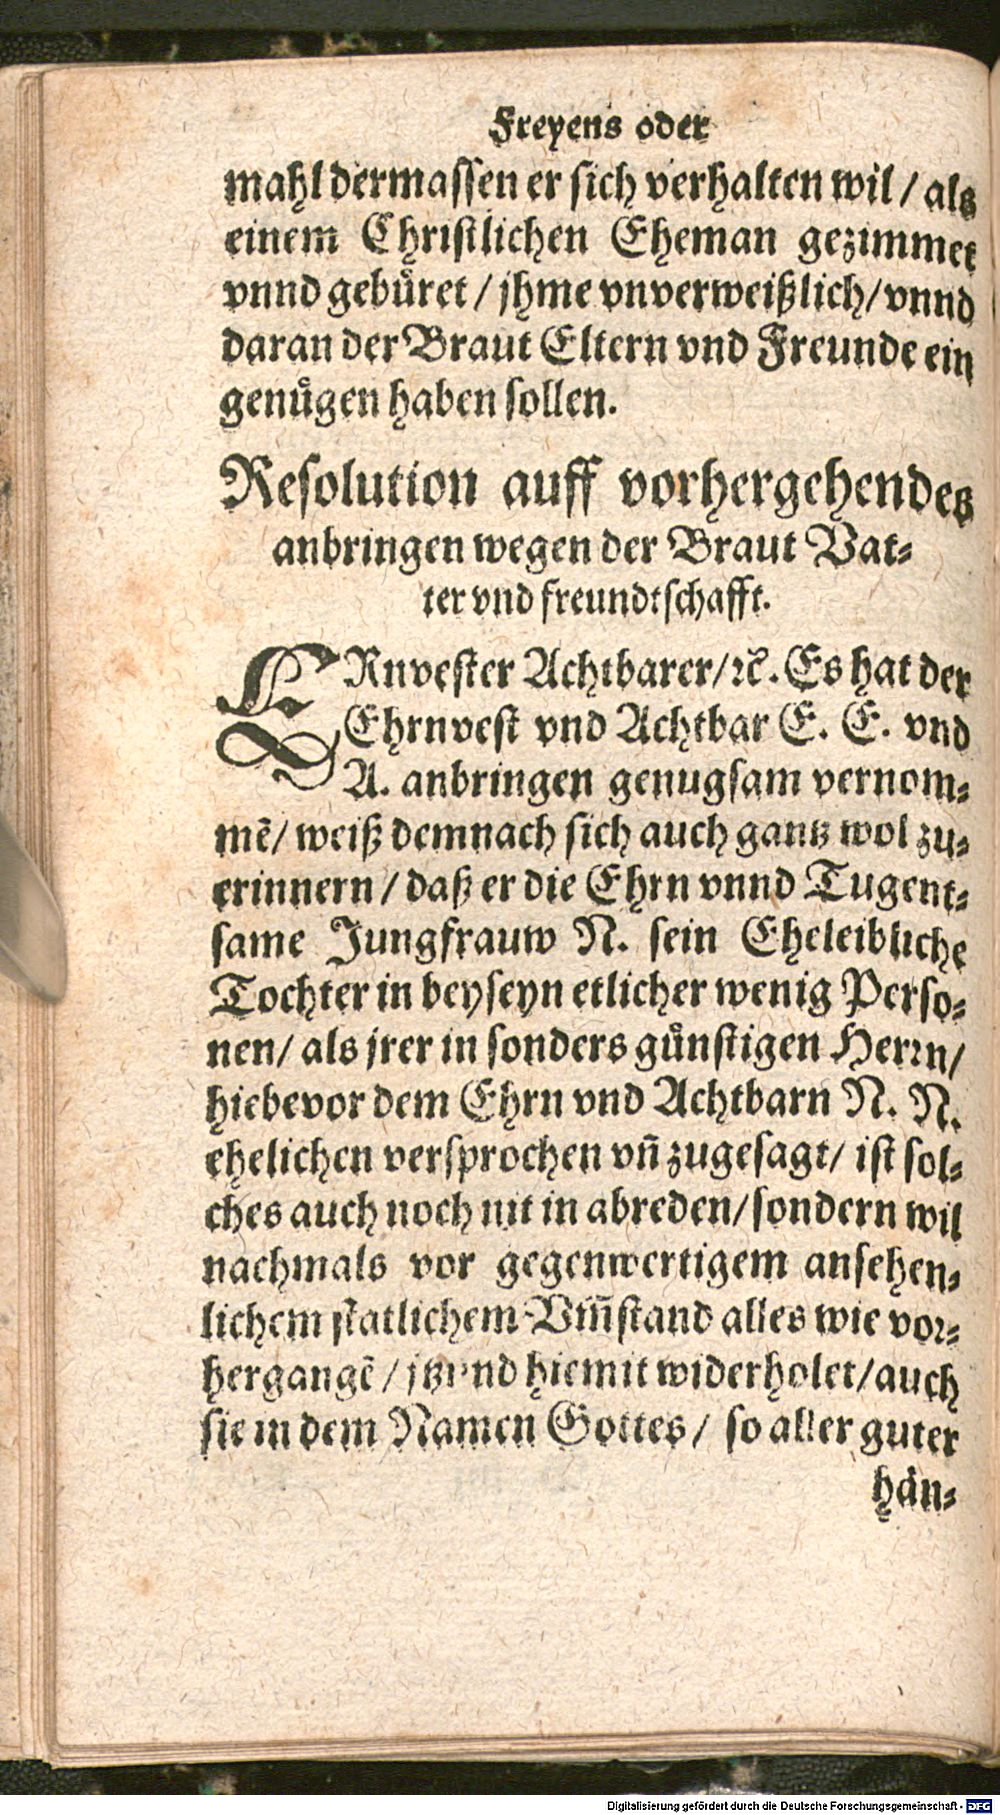 Freyens oder
mahl dermassen er sich verhalten wil / als
einem Christlichen Eheman gezimmet
vnnd gebuͤret / jhme vnverweißlich / vnnd
daran der Braut Eltern vnd Freunde ein
genuͤgen haben sollen.
Resolution auff vorhergehendes
anbringen wegen der Braut Vat⸗
ter vnd freundtschafft.
ERnvester Achtbarer / ꝛc̃. Es hat der
Ehrnvest vnd Achtbar E. E. vnd
A. anbringen genugsam vernom⸗
mẽ / weiß demnach sich auch gantz wol zu⸗
erinnern / daß er die Ehrn vnnd Tugent⸗
same Jungfrauw N. sein Eheleibliche
Tochter in beyseyn etlicher wenig Perso⸗
nen / als jrer in sonders guͤnstigen Herrn /
hiebevor dem Ehrn vnd Achtbarn N. N.
ehelichen versprochen vñ zugesagt / ist sol⸗
ches auch noch nit in abreden / sondern wil
nachmals vor gegenwertigem ansehen⸗
lichem statlichem Vm̃stand alles wie vor⸗
hergangẽ / jtzund hiemit widerholet / auch
sie in dem Namen Gottes / so aller guter
haͤn⸗
Digitalisierung gefördert durch die Deutsche Forschungsgemeinschaft - DFG